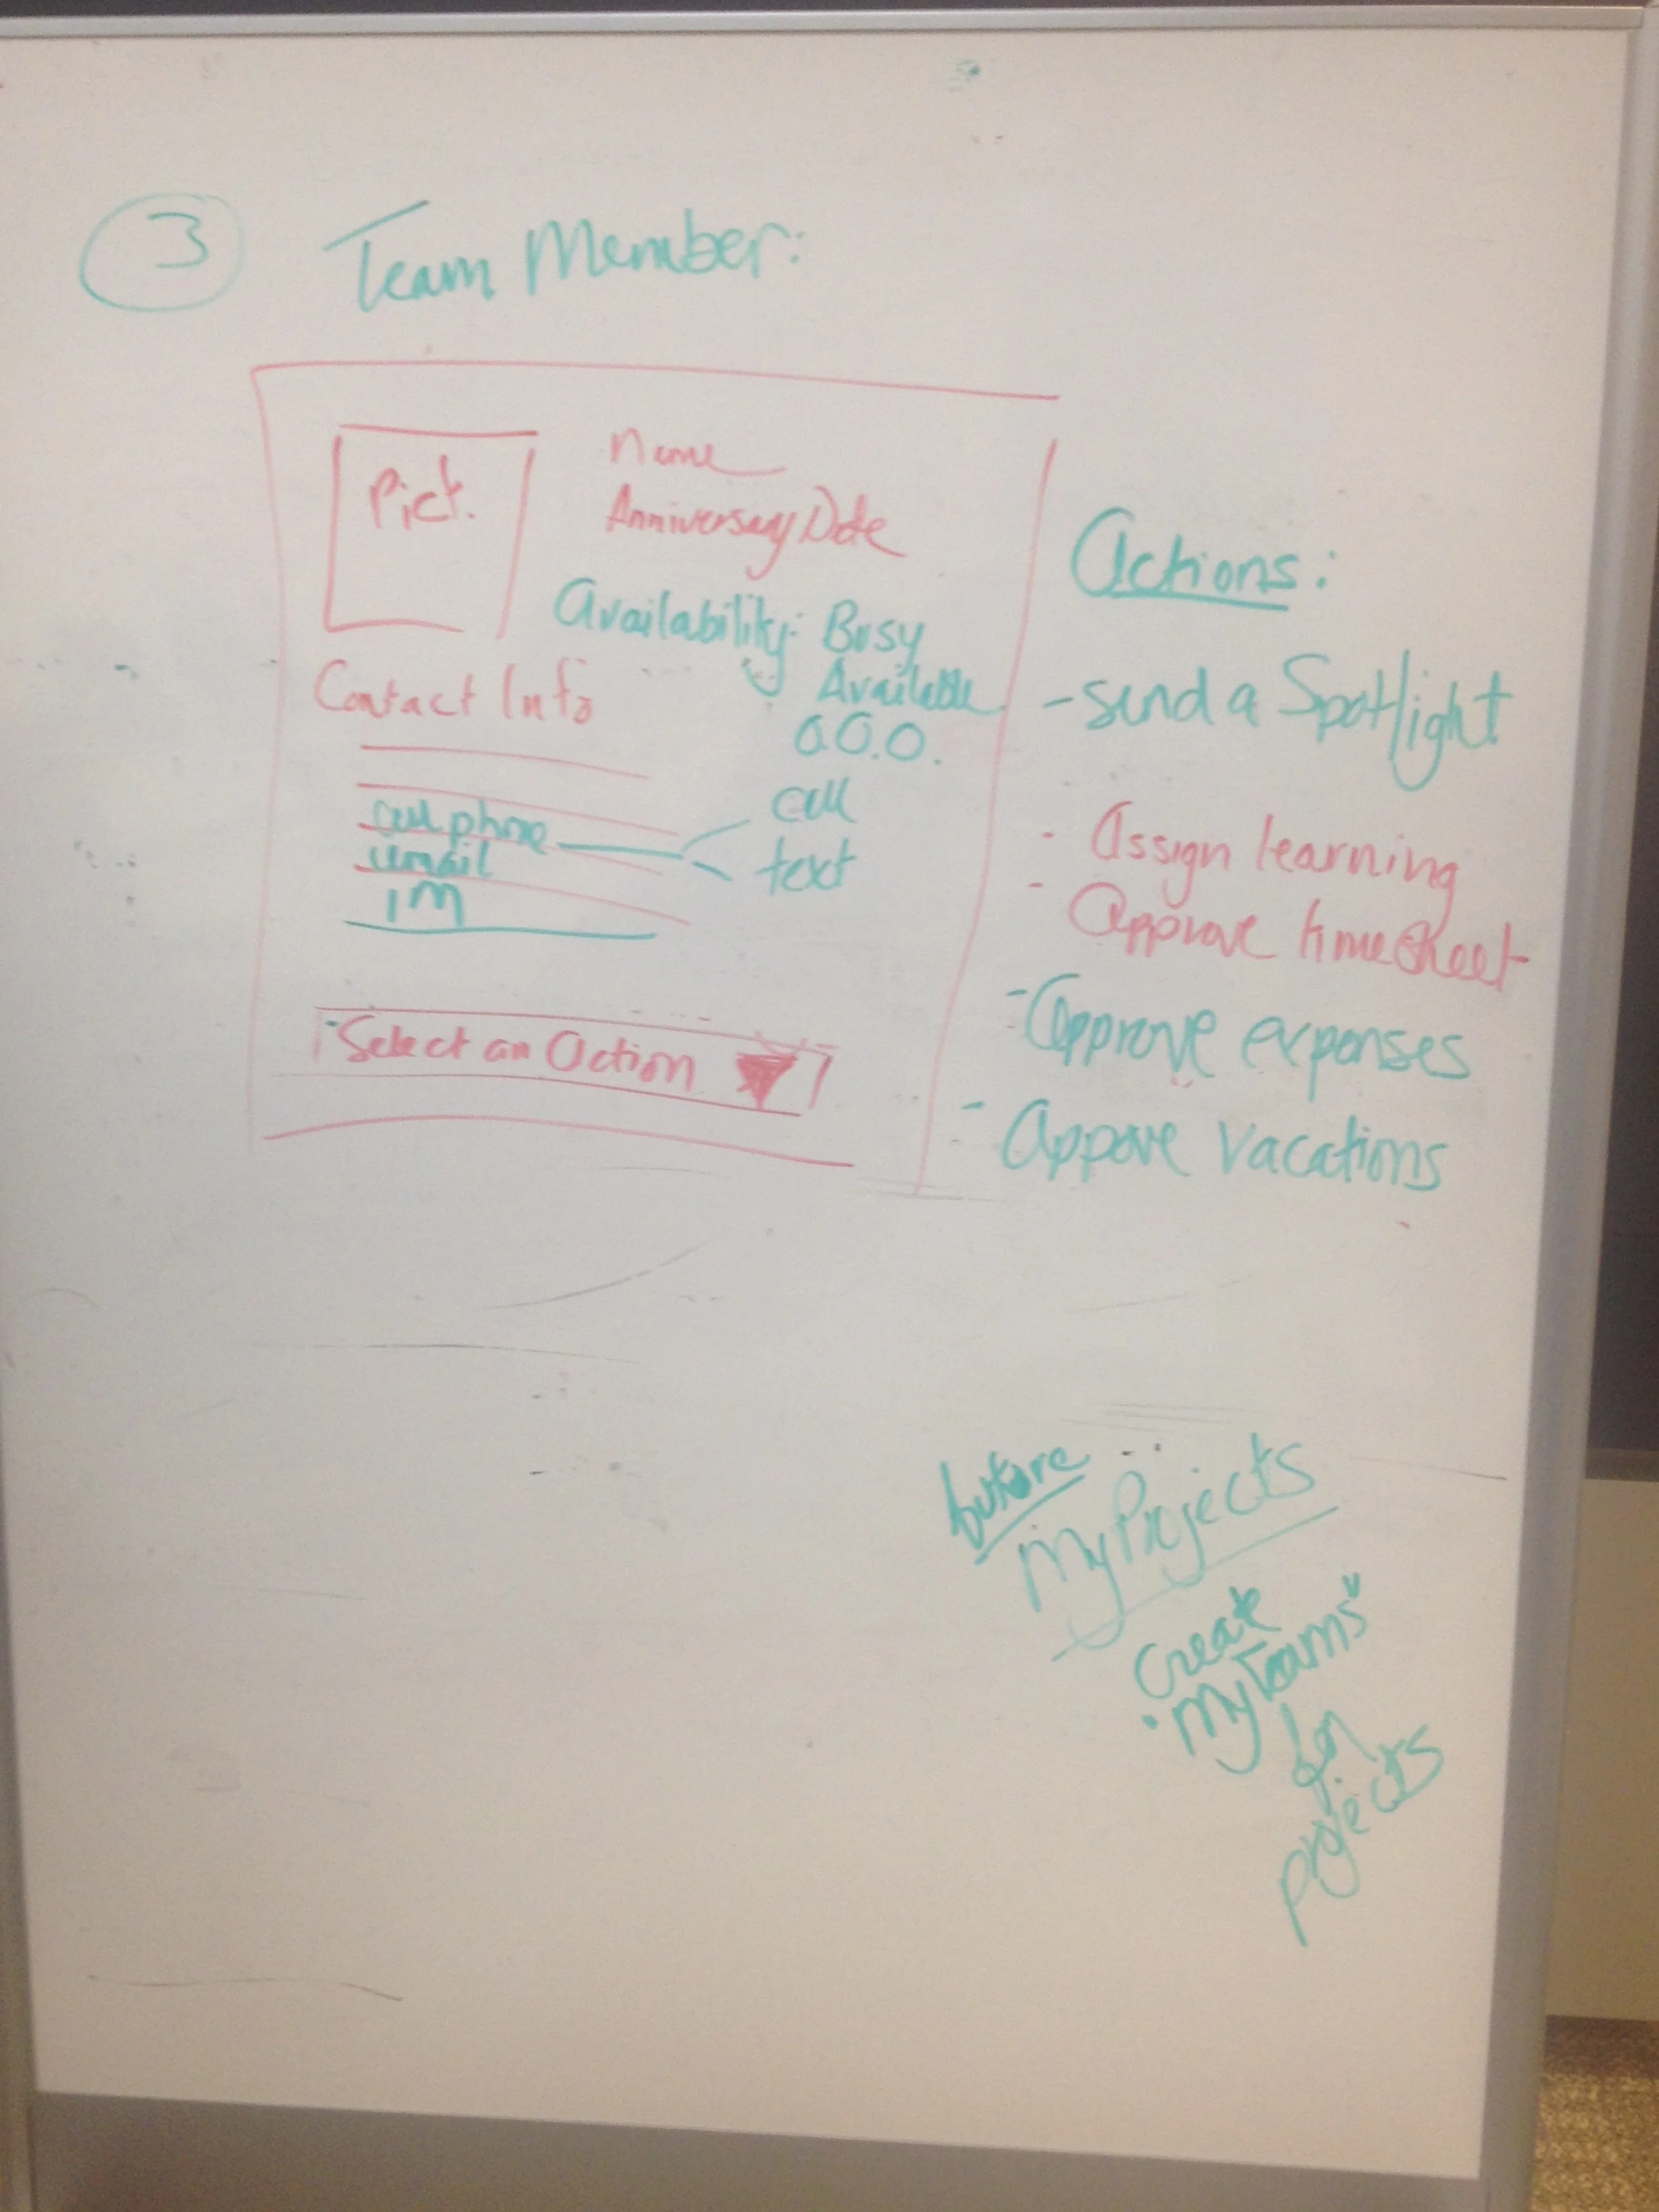 3 Team Member:
Pict.
Name
Anniversary Date
Availability: Busy
Available
O.O.O.
Contact Info
cell phone
call
text
email
IM
Select an Action
Actions:
- send a Spotlight
- Assign learning
- Approve timesheet
- Approve expenses
- Appove vacations
My Projects
Create
"My Teams"
for
projects